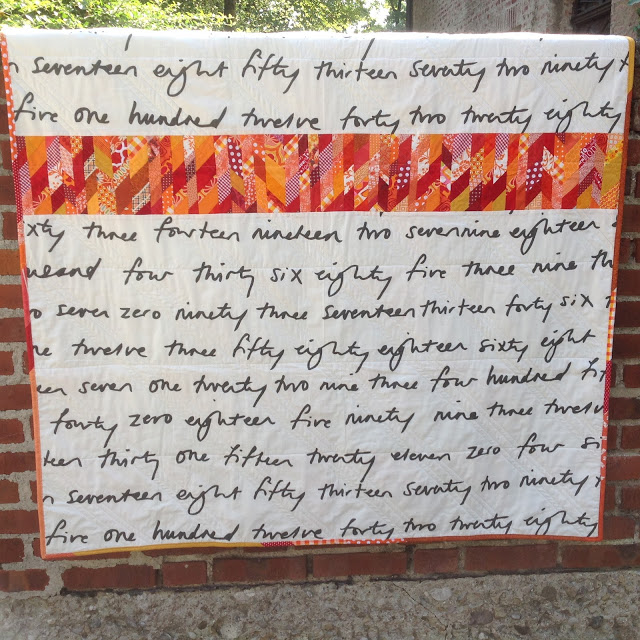 seventeen eight fifty thirteen seventy two ninety
five one hundred twelve forty two twenty eighty
xty three fourteen nineteen two seven nine eighteen
usand four thirty six eighty five three nine th
o seven zero ninety three seventeen thirteen forty six
ne twelve three fifty eighty eighteen sixty eight
een seven one twenty two nine three four hundred fi
fourty zero eighteen five ninety nine three twelv
teen thirty one fifteen twenty eleven zero four si
n seventeen eight fifty thirteen seventy two ninety
five one hundred twelve forty two twenty eighty